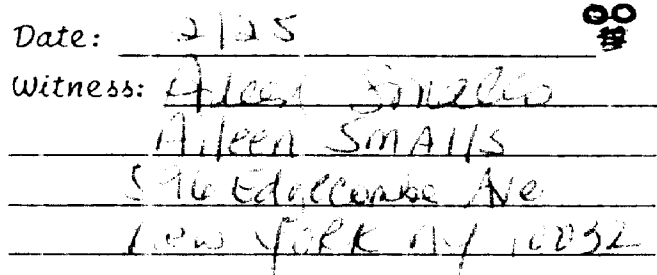 Date: 2/25
Witness: Aileen Smalls
Aileen SmAlls
596 Edgecombe Ave
New YORK NY 10032